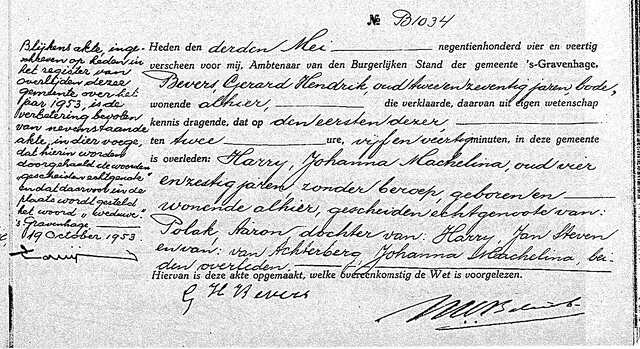 № B1034
Blijkens akte, inge-
schreven op heden in
het register van
overlijden dezer
gemeente over het
jaar 1953, is de
verbetering bevolen
van nevenstaande
akte, in dier voege,
dat hierin worden
doorgehaald de woorden
"gescheiden echtgenoote"
en dat daarvoor in de
plaats wordt gesteld
het woord "weduwe".
's Gravenhage,
19 October 1953.
Heden den derden Mei negentienhonderd vier en veertig
verscheen voor mij, Ambtenaar van den Burgerlijken Stand der gemeente 's-Gravenhage,
Bevers, Gerard Hendrik, oud twee en zeventig jaren, bode,
wonende alhier, die verklaarde, daarvan uit eigen wetenschap
kennis dragende, dat op den eersten dezer
ten twee ure, vijf en veertig minuten, in deze gemeente
is overleden: Harry, Johanna Machelina, oud vier
en zestig jaren, zonder beroep, geboren en
wonende alhier, gescheiden echtgenoote van:
Polak, Aaron, dochter van: Harry, Jan Steven
en van: van Achterberg, Johanna Machelina, bei-
den overleden.
Hiervan is deze akte opgemaakt, welke overeenkomstig de Wet is voorgelezen.
G H Bevers